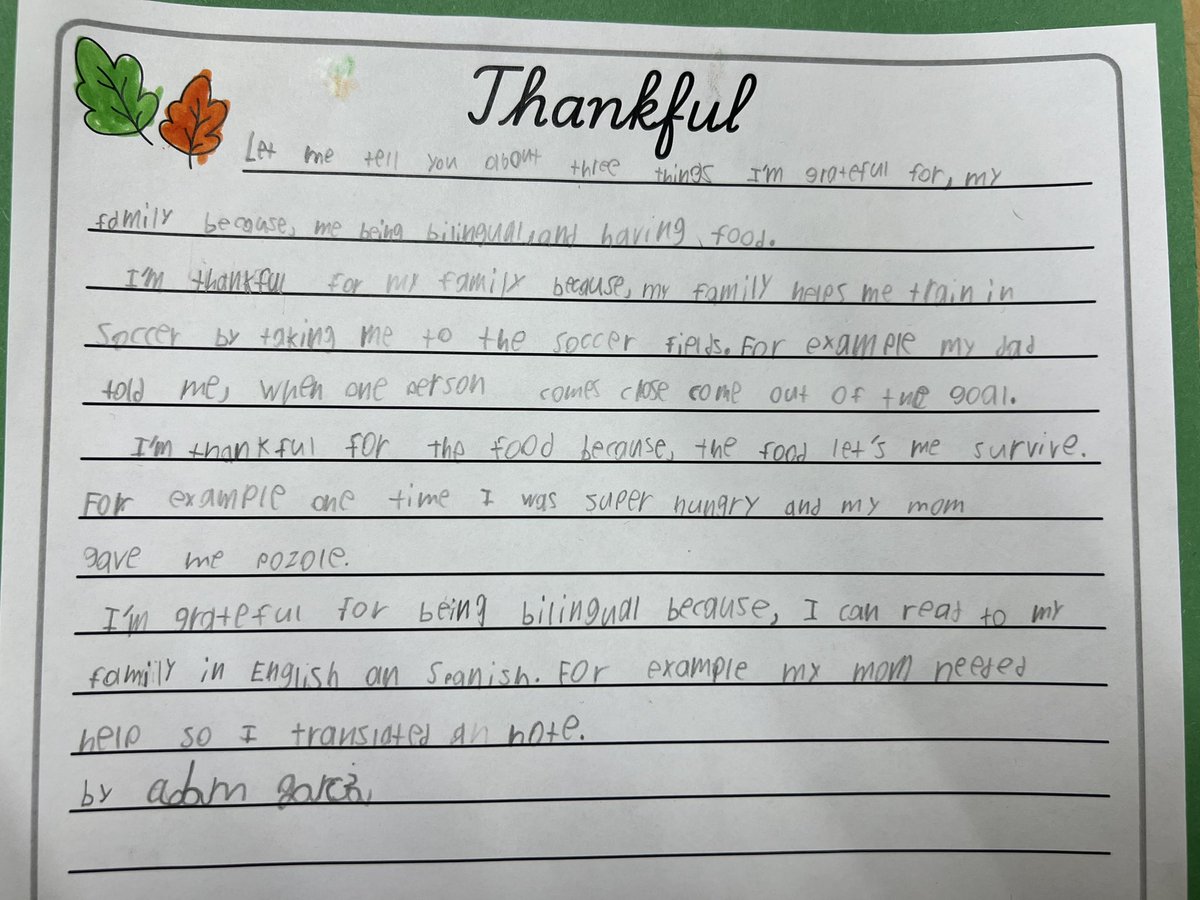 Thankful
Let me tell you about three things I'm grateful for, my
family because, me being bilingual, and having food.
I'm thankful for my family because, my family helps me train in
soccer by taking me to the soccer fields. For example my dad
told me, when one person comes close come out of the goal.
I'm thankful for the food because, the food let's me survive.
For example one time I was super hungry and my mom
gave me pozole.
I'm grateful for being bilingual because, I can read to my
family in English an Spanish. For example my mom needed
help so I translated an note.
by adam garcia